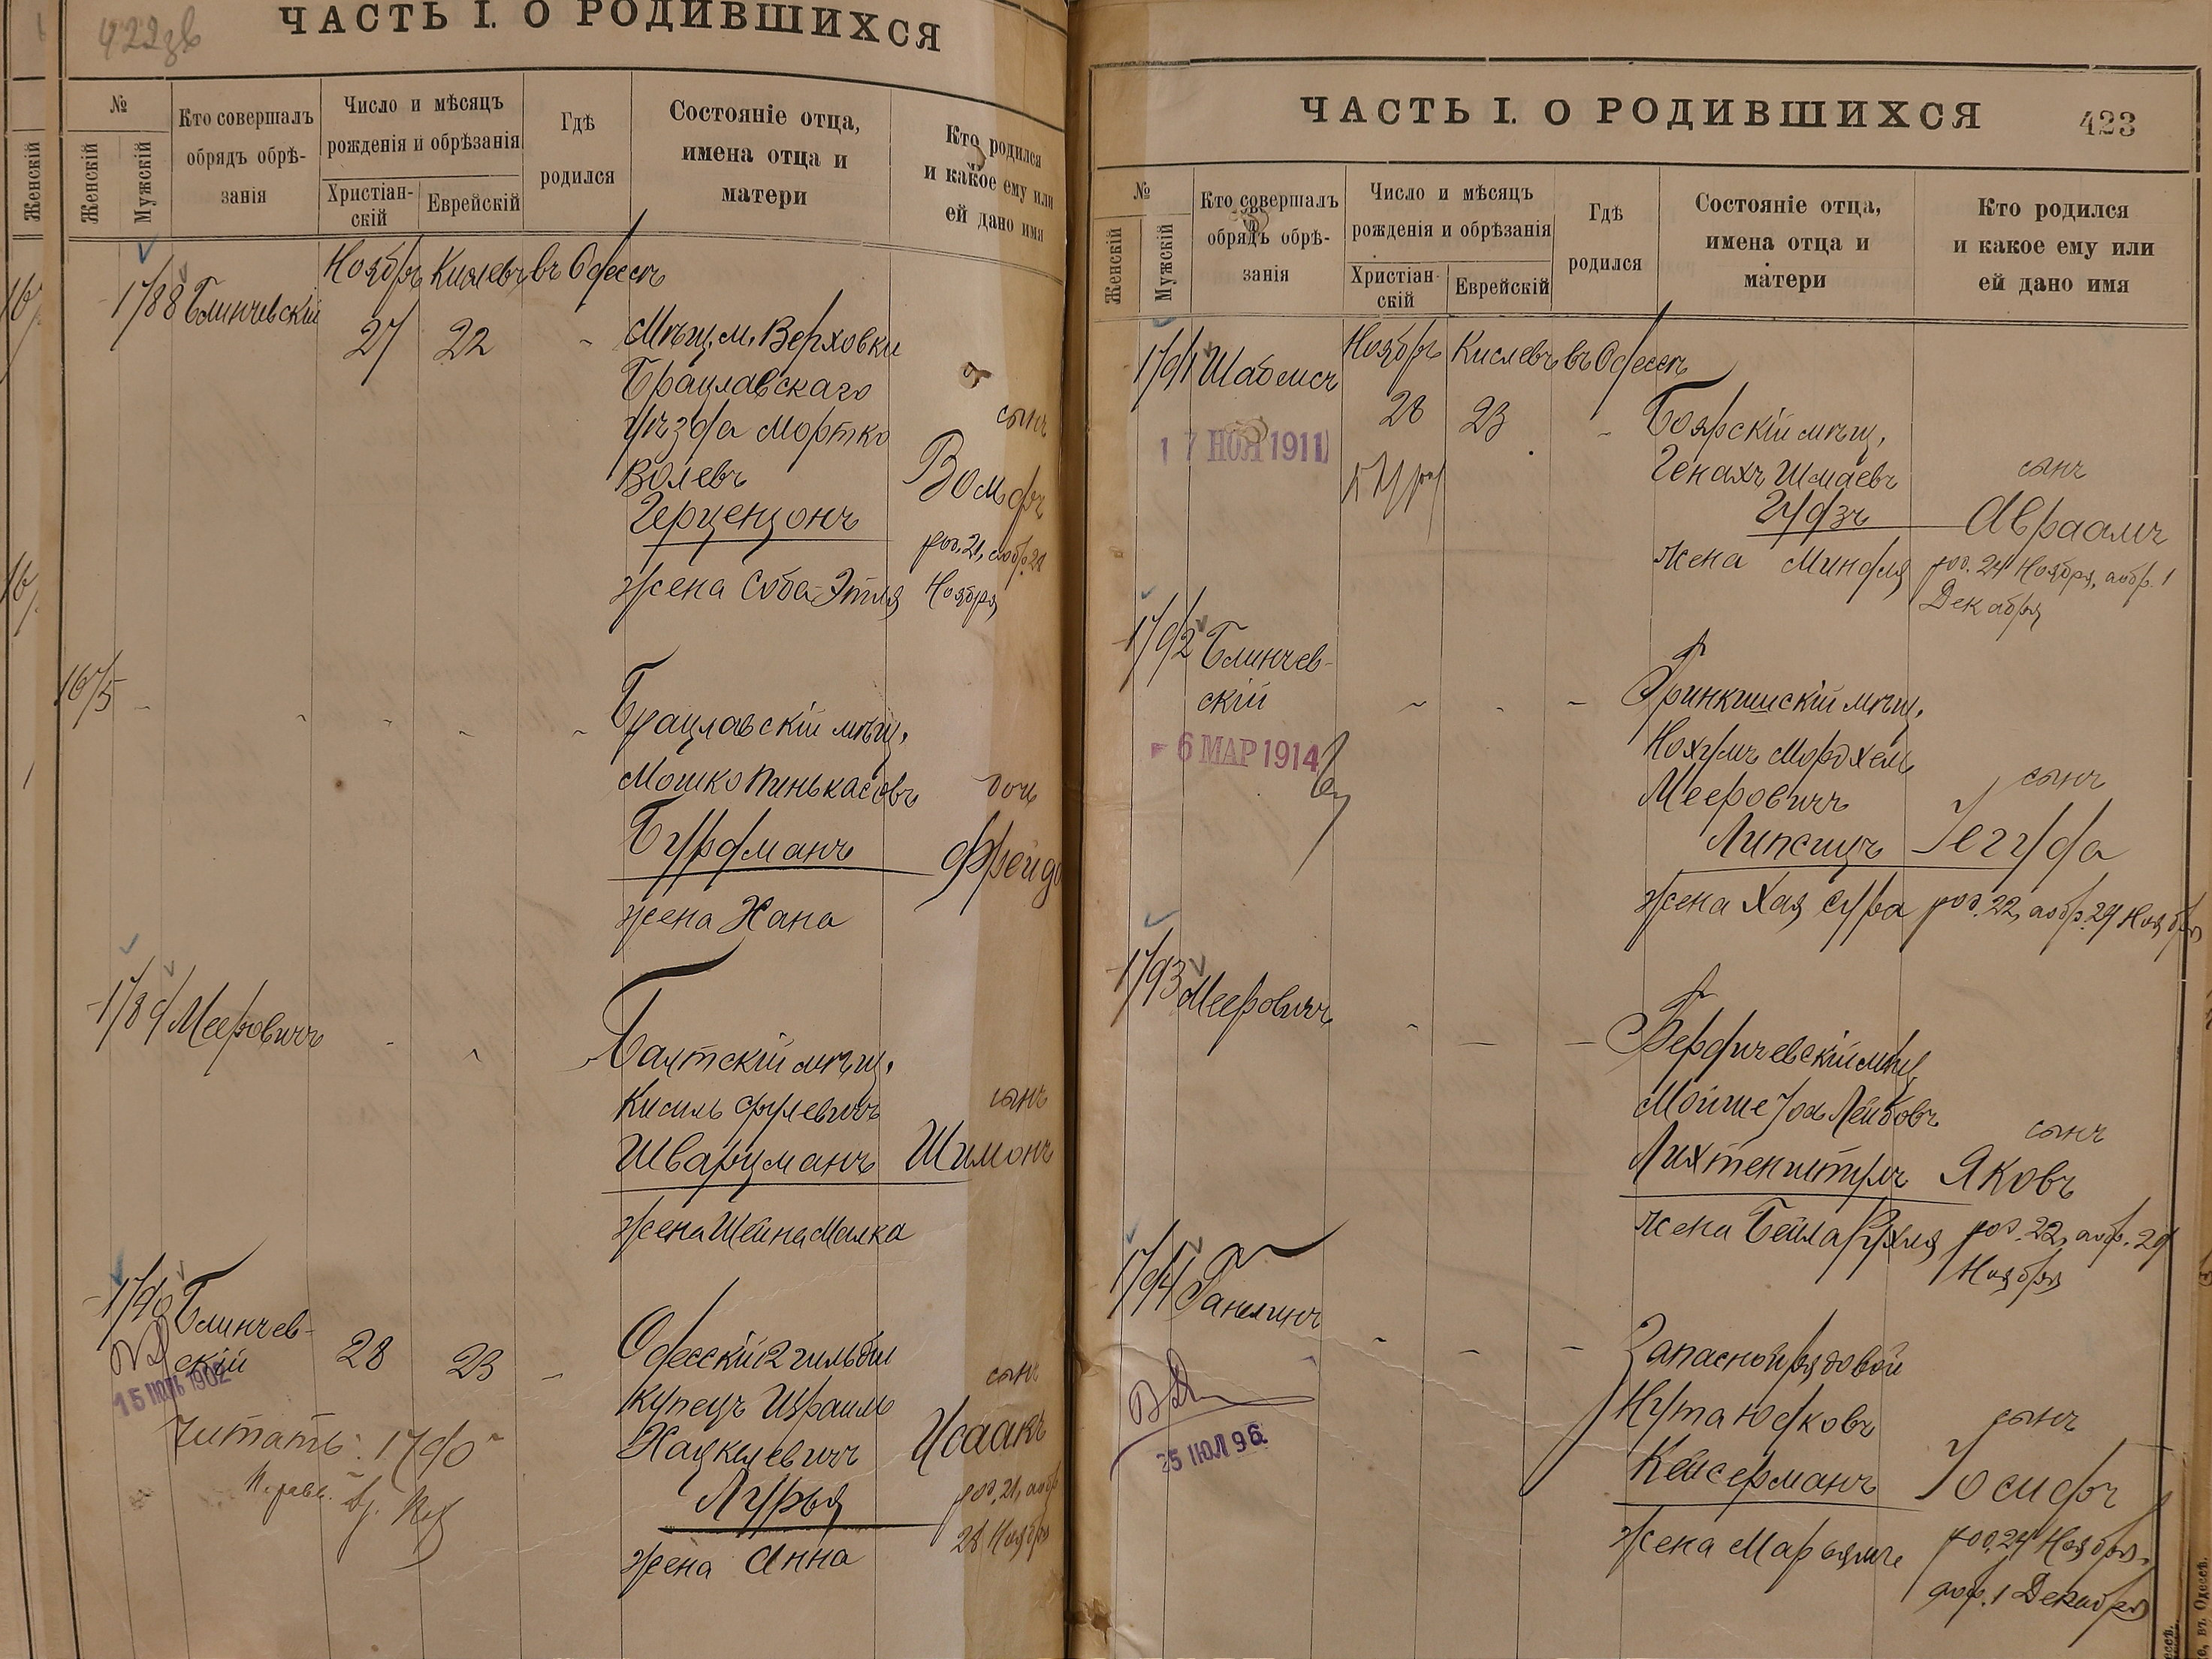 422зв
ЧАСТЬ I. О РОДИВШИХСЯ
№
Женскій
Женскій
Мужскій
Кто совершалъ
обрядъ обрѣ-
занія
Число и мѣсяцъ
рожденія и обрѣзанія
Христіан-
скій
Еврейскій
Гдѣ
родился
Состояніе отца,
имена отца и
матери
Кто родился
и какое ему или
ей дано имя
Ноябрь Кислевъ въ Одессѣ
1788 Блинчевскій
27 22
Мѣщ. м. Верховки
Брацлавскаго
уѣзда Мортко
Волевъ
Герцензонъ
жена Соба-Этля
сынъ
Вольфъ
род. 21, а обр. 27
Ноября
1675
Брацлавскій мѣщ.
Мошко Пинькасовъ
Бурдманъ
жена Хана
дочь
Фрейда
1789 Мееровичъ
Балтскій мѣщ.
Кисиль Срулевичъ
Шварцманъ
жена Шейна Малка
сынъ
Шимонъ
1790 Блинчев-
скій
28 23
15 ІЮЛЬ 1902
Читать: 1790
Одесскій 2 гильдіи
купецъ Израиль
Хацкелевичъ
Лурья
жена Анна
сынъ
Исаакъ
род. 21, а обр.
28 Ноября
ЧАСТЬ I. О РОДИВШИХСЯ
423
№
Женскій
Мужскій
Кто совершалъ
обрядъ обрѣ-
занія
Число и мѣсяцъ
рожденія и обрѣзанія
Христіан-
скій
Еврейскій
Гдѣ
родился
Состояніе отца,
имена отца и
матери
Кто родился
и какое ему или
ей дано имя
Ноябрь Кислевъ въ Одессѣ
1791 Шабельсъ
28 23
17 НОЯ 1911
Боярскій мѣщ.
Генахъ Шмаевъ
Гудзъ
жена Миндля
сынъ
Авраамъ
род. 24 Ноября, а обр. 1
Декабря
1792 Блинчев-
скій
6 МАР 1914
Гринкишскій мѣщ.
Нохумъ Мордхель
Мееровичъ
Липсицъ
жена Хая Сура
сынъ
Іегуда
род. 22, а обр. 29 Ноября
1793 Мееровичъ
Бердичевскій мѣщ.
Мойше Іось Лейбовъ
Лихтенштулъ
жена Бейла Рухля
сынъ
Яковъ
род. 22, а обр. 29
Ноября
1794 Ганелинъ
25 ІЮЛ 96
Запасной рядовой
Нута Юдковъ
Кейсерманъ
жена Марьяме
сынъ
Іосифъ
род. 24 Ноября,
а обр. 1 Декабря